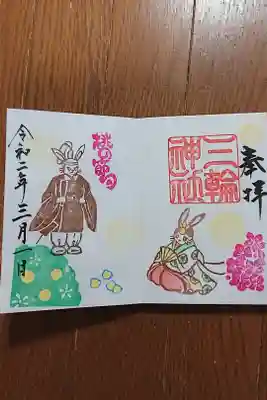 奉拝
三輪神社
桃の節句
令和二年三月一日